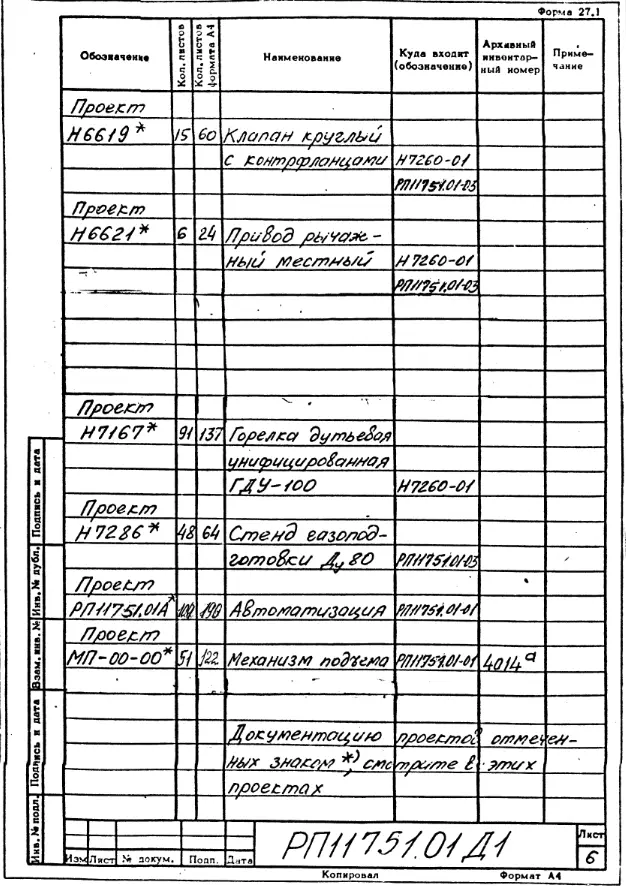 Форма 27.1
Обозначение Кол. листов Кол. листов формата А4 Наименование Куда входит (обозначение) Архивный инвентарный номер Примечание
Проект
Н6619* 15 60 Клапан круглый
с контрфланцами Н7260-01
РП11751.01-03
Проект
Н6621* 6 24 Привод рычаж-
ный местный Н7260-01
РП11751.01-03
Проект
Н7167* 91 137 Горелка дутьевая
унифицированная
ГДУ-100 Н7260-01
Проект
Н7286* 48 64 Стенд газопод-
готовки Ду 80 РП11751.01-03
Проект
РП11751.01А* 100 190 Автоматизация РП11751.01-01
Проект
МП-00-00* 51 122 Механизм подъема РП11751.01-01 4014а
Документацию проектов отмечен-
ных знаком *) смотрите в этих
проектах
Инв. № подл. Подпись и дата Взам. инв. № Инв. № дубл. Подпись и дата
РП11751.01 Д1
Лист
6
Изм Лист № докум. Подп. Дата
Копировал Формат А4